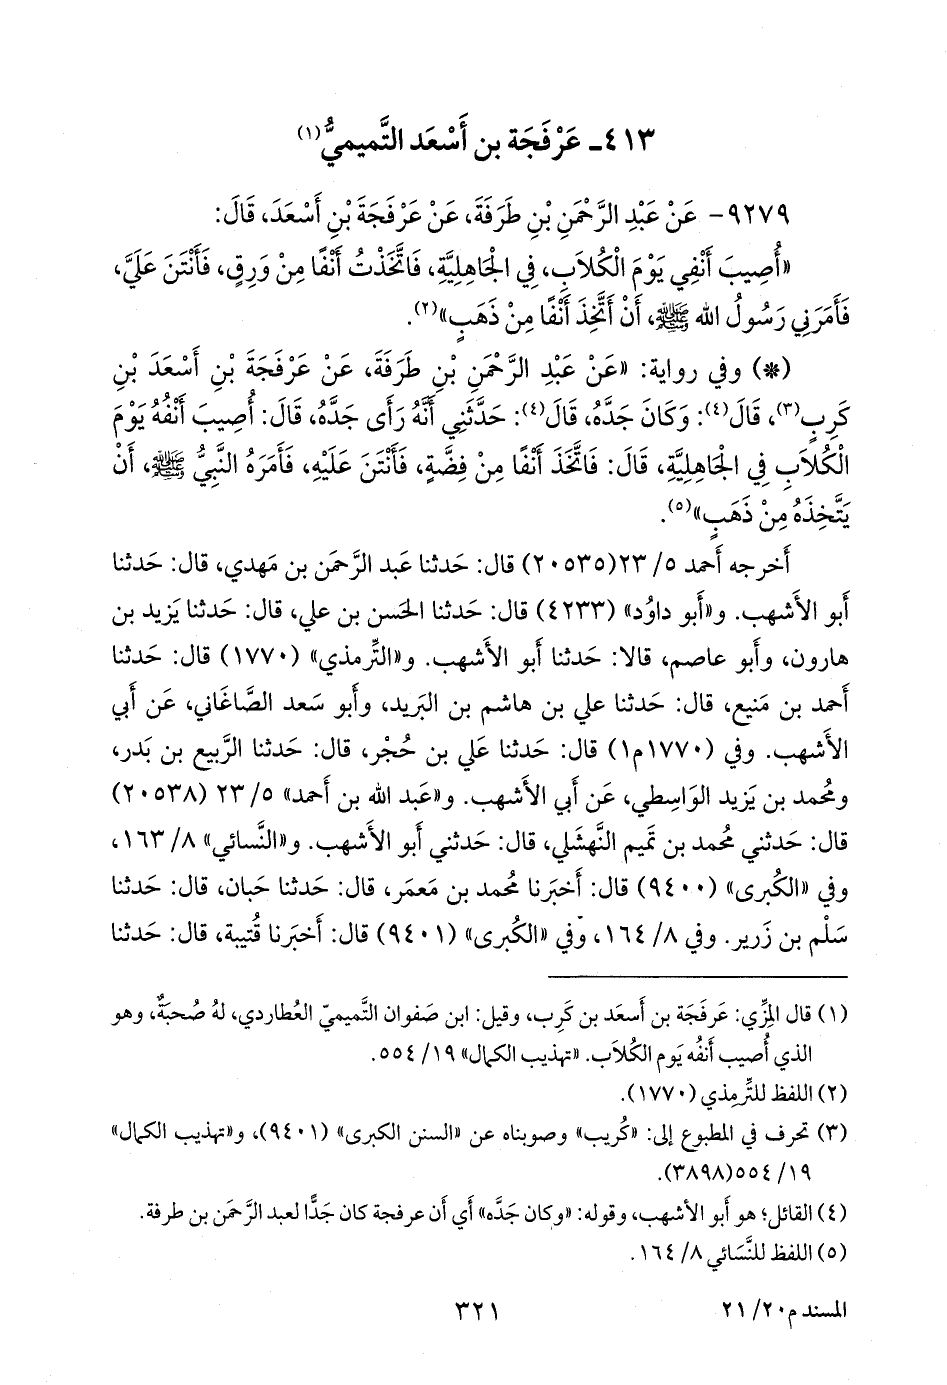 ٤١٣ـ عَرْفَجَة بن أَسْعَد التَّميميُّ(١)
٩٢٧٩- عَنْ عَبْدِ الرَّحْمَنِ بْنِ طَرَفَةَ، عَنْ عَرْفَجَةَ بْنِ أَسْعَدَ، قَالَ:
«أُصِيبَ أَنْفِي يَوْمَ الْكُلاَبِ، فِي الجَاهِلِيَّةِ، فَاتَّخَذْتُ أَنْفًا مِنْ وَرِقٍ، فَأَنْتَنَ عَلَيَّ،
فَأَمَرَنِي رَسُولُ الله ﷺ، أَنْ أَتَّخِذَ أَنْفًا مِنْ ذَهَبٍ»(٢).
(*) وفي رواية: «عَنْ عَبْدِ الرَّحْمَنِ بْنِ طَرَفَةَ، عَنْ عَرْفَجَةَ بْنِ أَسْعَدَ بْنِ
كَرِبٍ(٣)، قَالَ(٤): وَكَانَ جَدَّهُ، قَالَ(٤): حَدَّثَنِي أَنَّهُ رَأَى جَدَّهُ، قَالَ: أُصِيبَ أَنْفُهُ يَوْمَ
الْكُلاَبِ فِي الجَاهِلِيَّةِ، قَالَ: فَاتَّخَذَ أَنْفًا مِنْ فِضَّةٍ، فَأَنْتَنَ عَلَيْهِ، فَأَمَرَهُ النَّبِيُّ ﷺ، أَنْ
يَتَّخِذَهُ مِنْ ذَهَبٍ»(٥).
أَخرجه أَحمد ٥/ ٢٣(٢٠٥٣٥) قال: حَدثنا عَبد الرَّحمَن بن مَهدي، قال: حَدثنا
أَبو الأَشهب. و«أَبو داوُد» (٤٢٣٣) قال: حَدثنا الحَسن بن علي، قال: حَدثنا يَزيد بن
هارون، وأَبو عاصم، قالا: حَدثنا أَبو الأَشهب. و«التِّرمذي» (١٧٧٠) قال: حَدثنا
أَحمد بن مَنيع، قال: حَدثنا علي بن هاشم بن البَريد، وأَبو سَعد الصَّاغَاني، عَن أَبي
الأَشهب. وفي (١٧٧٠م١) قال: حَدثنا عَلي بن حُجْر، قال: حَدثنا الرَّبيع بن بَدر،
ومُحمد بن يَزيد الوَاسِطي، عَن أَبي الأَشهب. و«عَبد الله بن أَحمد» ٥/ ٢٣ (٢٠٥٣٨)
قال: حَدثني مُحمد بن تَميم النَّهشَلي، قال: حَدثني أَبو الأَشهب. و«النَّسائي» ٨/ ١٦٣،
وفي «الكُبرى» (٩٤٠٠) قال: أَخبَرنا مُحمد بن مَعمَر، قال: حَدثنا حَبان، قال: حَدثنا
سَلْم بن زَرير. وفي ٨/ ١٦٤، وفي «الكُبرى» (٩٤٠١) قال: أَخبَرنا قُتيبة، قال: حَدثنا
(١) قال المِزِّي: عَرفَجَة بن أَسعَد بن كَرِب، وقيل: ابن صَفوان التَّميميّ العُطاردي، لهُ صُحبَةٌ، وهو
الذي أُصيب أَنفُه يَوم الكُلاَب. «تهذيب الكمال» ١٩/ ٥٥٤.
(٢) اللفظ للتِّرمِذي (١٧٧٠).
(٣) تحرف في المطبوع إلى: «كُريب» وصوبناه عن «السنن الكبرى» (٩٤٠١)، و«تهذيب الكمال»
١٩/ ٥٥٤(٣٨٩٨).
(٤) القائل؛ هو أَبو الأَشهب، وقوله: «وكان جَدَّه» أي أَن عرفجة كان جَدًّا لعبد الرَّحمَن بن طرفة.
(٥) اللفظ للنَّسَائي ٨/ ١٦٤.
المسند م٢٠/ ٢١
٣٢١